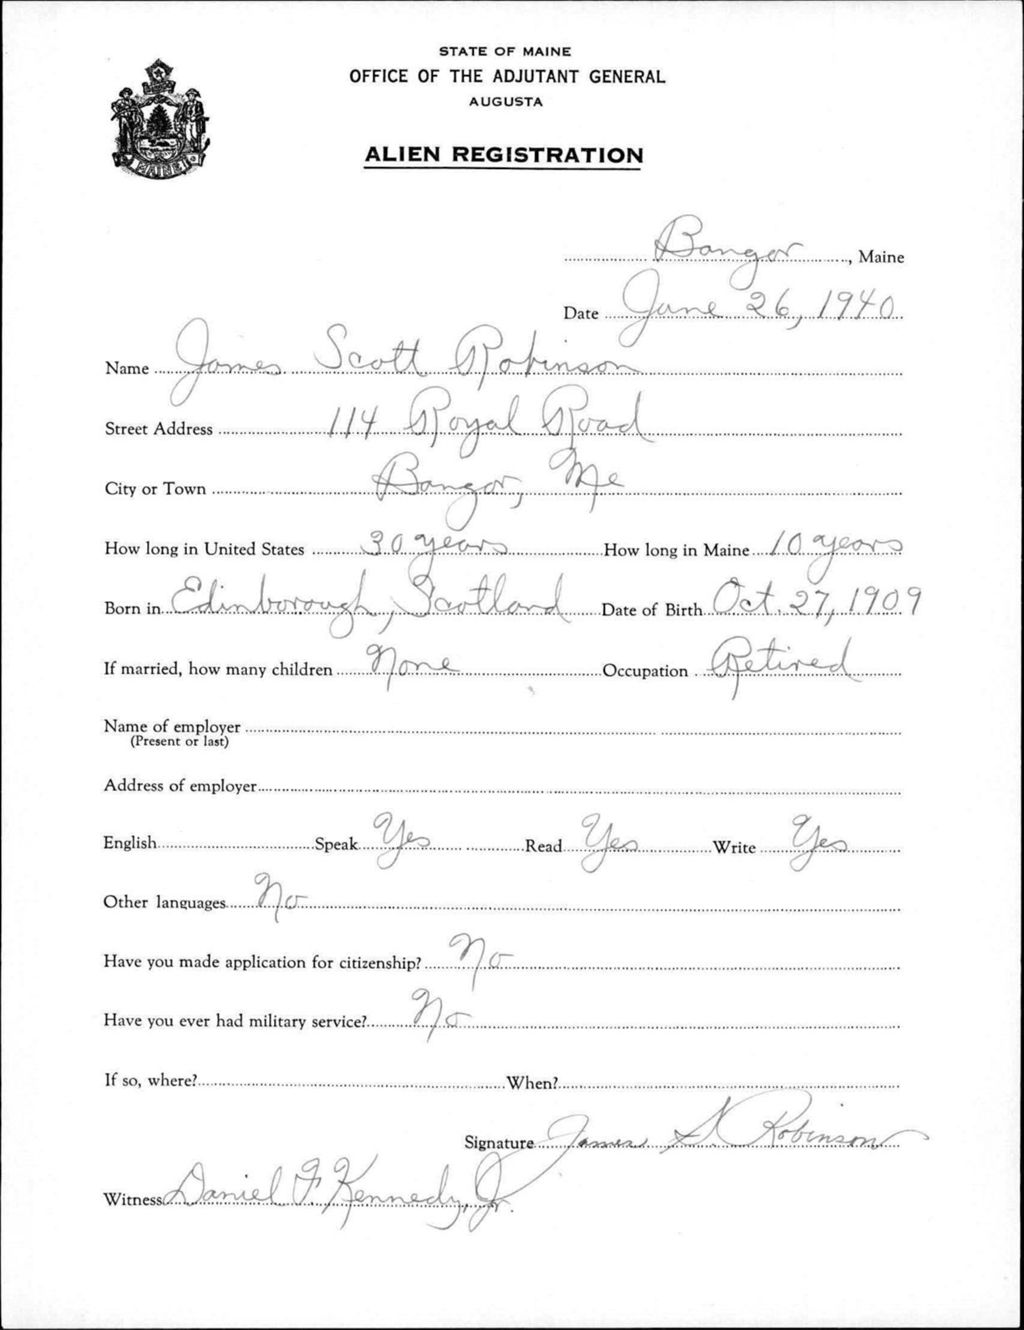 STATE OF MAINE
OFFICE OF THE ADJUTANT GENERAL
AUGUSTA
ALIEN REGISTRATION
MAINE
Bangor, Maine
Date June 26, 1940
Name James Scott Robinson
Street Address 114 Royal Road
City or Town Bangor, Me
How long in United States 30 years How long in Maine 10 years
Born in Edinborough, Scotland Date of Birth Oct. 27, 1909
If married, how many children None Occupation Retired
Name of employer
(Present or last)
Address of employer
English Speak Yes Read Yes Write Yes
Other languages No
Have you made application for citizenship? No
Have you ever had military service? No
If so, where? When?
Signature James S. Robinson
Witness Daniel F. Kennedy, Jr.